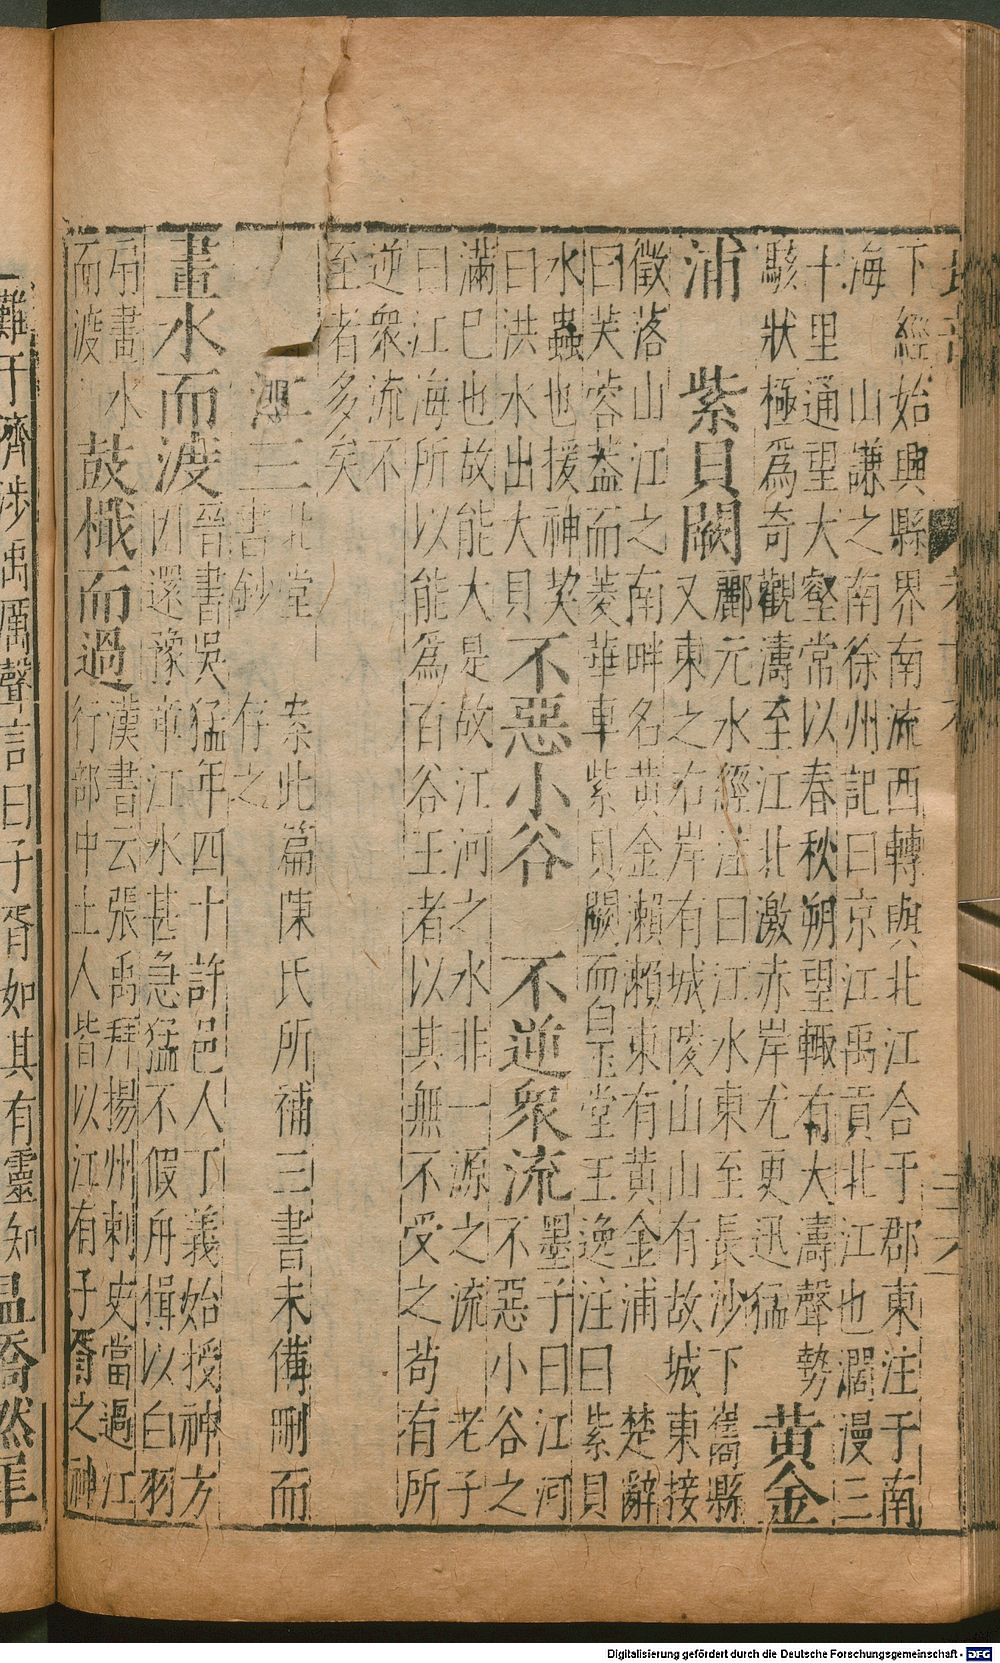 下經始興縣界南流西轉與北江合于郡東注于南
海　山謙之南徐州記曰京江禹貢北江也濶漫三
十里通望大壑常以春秋朔望輙有大濤聲勢
駭狀極為奇觀濤至江北激赤岸尤更迅猛 黄金
浦 紫貝闕
酈元水經注曰江水東至長沙下雋縣
又東之右岸有城陵山山有故城東接
徵落山江之南畔名黄金瀨瀨東有黄金浦 楚辭
曰芙蓉葢而菱華車紫貝闕而白玉堂王逸注曰紫貝
水蟲也援神契
曰洪水出大貝
不惡小谷 不逆衆流
墨子曰江河
不惡小谷之
滿已也故能大是故江河之水非一源之流 老子
曰江海所以能為百谷王者以其無不受之苟有所
逆衆流不
至者多矣
江三
北堂
書鈔
案此篇陳氏所補三書未備刪而
存之
畫水而渡
晉書吳猛年四十許邑人丁義始授神方
因還豫章江水甚急猛不假舟楫以白羽
扇畫水
而渡
鼓檝而過
漢書云張禹拜揚州刺史當過江
行部中土人皆以江有子胥之神
難于濟涉禹厲聲言曰子胥如其有靈知 温嶠燃犀
Digitalisierung gefördert durch die Deutsche Forschungsgemeinschaft - DFG